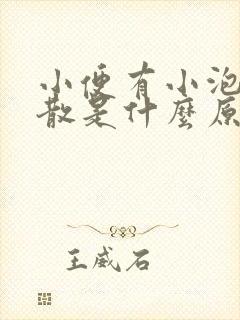 小便有小泡
散是什麼原
王威石